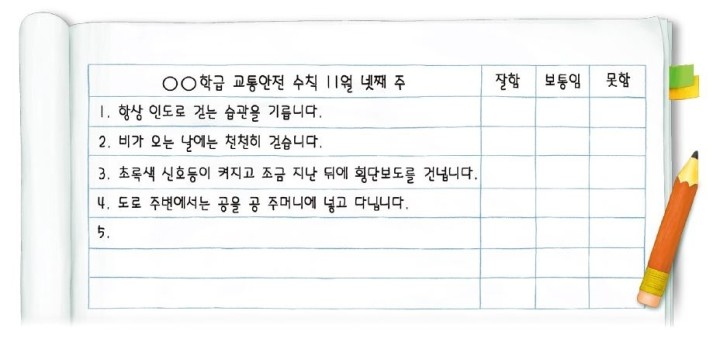 ○○학급 교통안전 수칙 11월 넷째 주 잘함 보통임 못함
1. 항상 인도로 걷는 습관을 기릅니다.
2. 비가 오는 날에는 천천히 걷습니다.
3. 초록색 신호등이 켜지고 조금 지난 뒤에 횡단보도를 건넙니다.
4. 도로 주변에서는 공을 공 주머니에 넣고 다닙니다.
5.